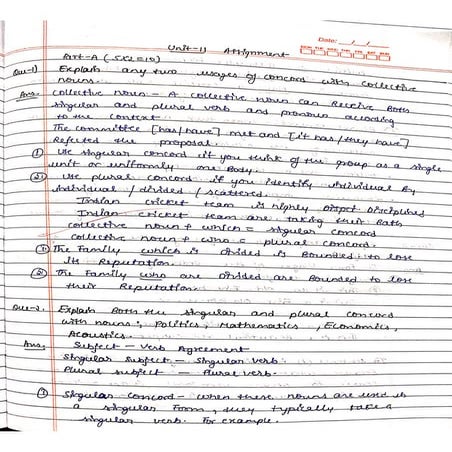 Date: / /
Unit-11 Assignment
Part-A (5X2=10)
Que-1) Explain any two usages of concord with collective
nouns.
Ans. Collective noun - A collective noun can receive both
singular and plural verb and pronoun according
to the context.
The committee [has/have] met and [it has/they have]
Rejected the proposal.
① Use singular concord if you think of the group as a single
unit or uniformly one body.
② Use plural concord if you identify individual by
individual / divided / scattered.
Indian cricket team is highly Disciplined
Indian cricket team are taking their bath
Collective noun + which = singular concord
Collective noun + who = plural concord.
① The Family which is divided is Bounded to lose
its Reputation.
② The Family who are divided are Bounded to lose
their Reputation
Que-2. Explain Both the singular and plural concord
with nouns; Politics, Mathematics, Economics,
Acoustics.
Ans: Subject - verb Agreement
Singular subject - Singular verb.
Plural subject - Plural verb.
① Singular concord - when these nouns are used in
a singular form, they typically take a
singular verb. For example.